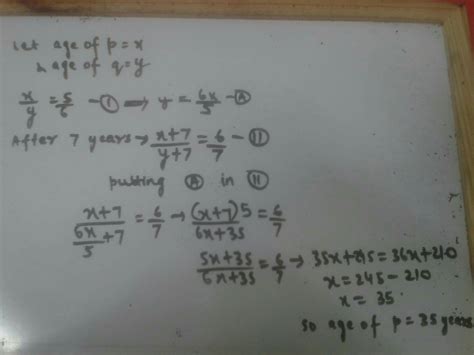 Let age of p = x
& age of q = y
x/y = 5/6 – Ⅰ → y = 6x/5 – Ⓐ
After 7 years → x+7/y+7 = 6/7 – Ⅱ
putting Ⓐ in Ⅱ
x+7/(6x/5 + 7) = 6/7 → (x+7)5/6x+35 = 6/7
5x+35/6x+35 = 6/7 → 35x+245 = 36x+210
x = 245 – 210
x = 35
so age of p = 35 years